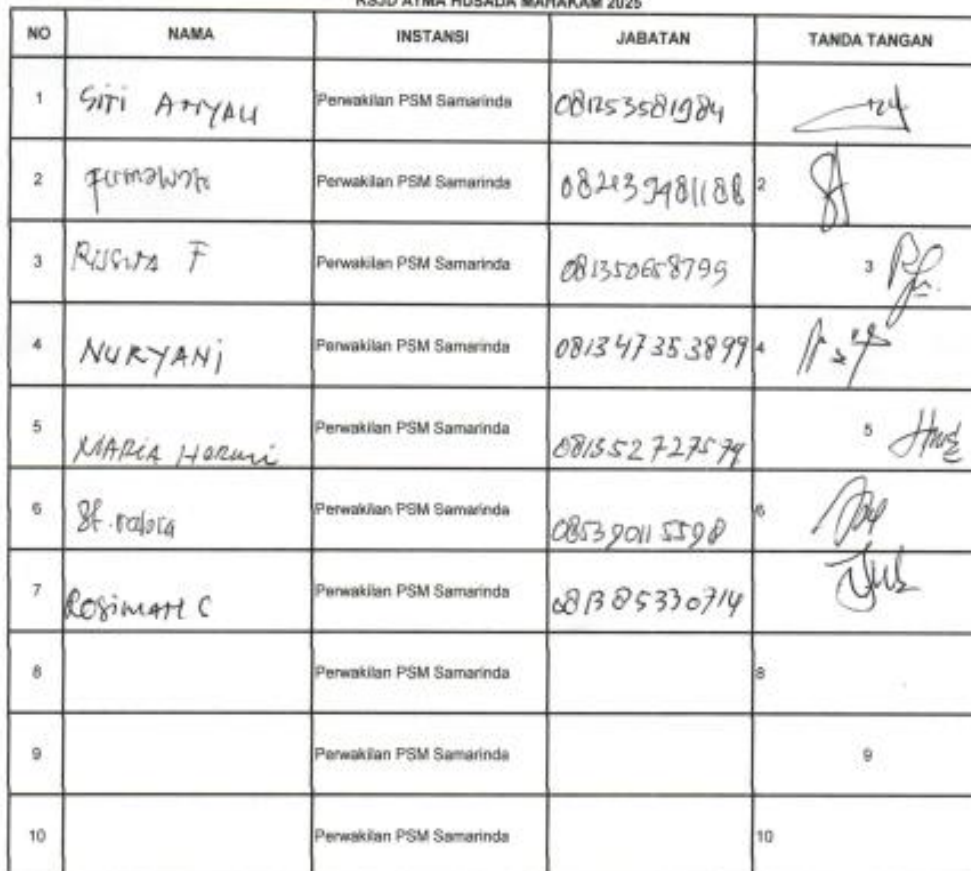 RSJD ATMA HUSADA MAHAKAM 2025
NO NAMA INSTANSI JABATAN TANDA TANGAN
1 SiTi Perwakilan PSM Samarinda 081253581984
2 Perwakilan PSM Samarinda 082139481188 2
3 F Perwakilan PSM Samarinda 081350658799 3
4 NURYANi Perwakilan PSM Samarinda 081347353899 4
5 MARIA Perwakilan PSM Samarinda 081352727579 5
6 St. Perwakilan PSM Samarinda 085390115598 6
7 Rosimah C Perwakilan PSM Samarinda 081385330714
8 Perwakilan PSM Samarinda 8
9 Perwakilan PSM Samarinda 9
10 Perwakilan PSM Samarinda 10